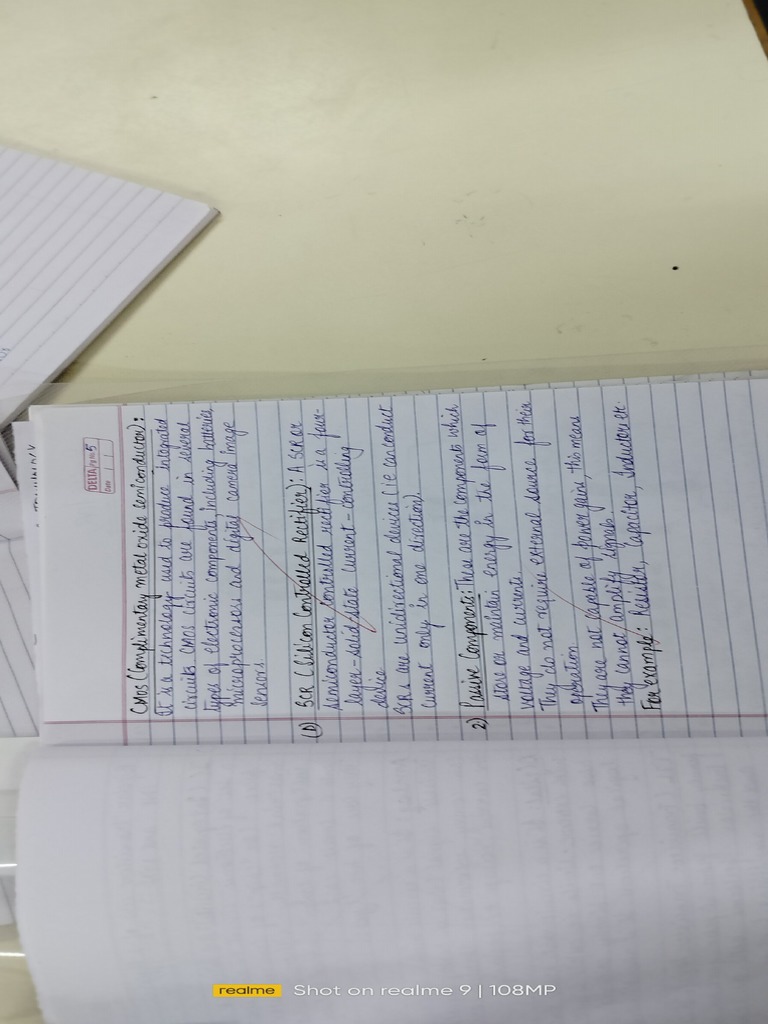 DELTA Pg No. 5
Date / /
CMOS (Complimentary metal oxide semiconductor):
It is a technology used to produce integrated
circuits CMOS circuits are found in several
types of electronic components including batteries,
microprocessers and digital camera image
sensors.
(D) SCR (Silicon Controlled Rectifier): A SCR or
semiconductor controlled rectifier is a four-
layer-solid-state current-controlling
device
SCRs are unidirectional devices (i.e can conduct
current only in one direction)
2) Passive Components: These are the components which
store or maintain energy in the form of
voltage and current.
They do not require external source for their
operation.
They are not capable of power gain, this means
they cannot amplify signals.
For example: Resistor, Capacitor, Inductor etc.
realme Shot on realme 9 | 108MP